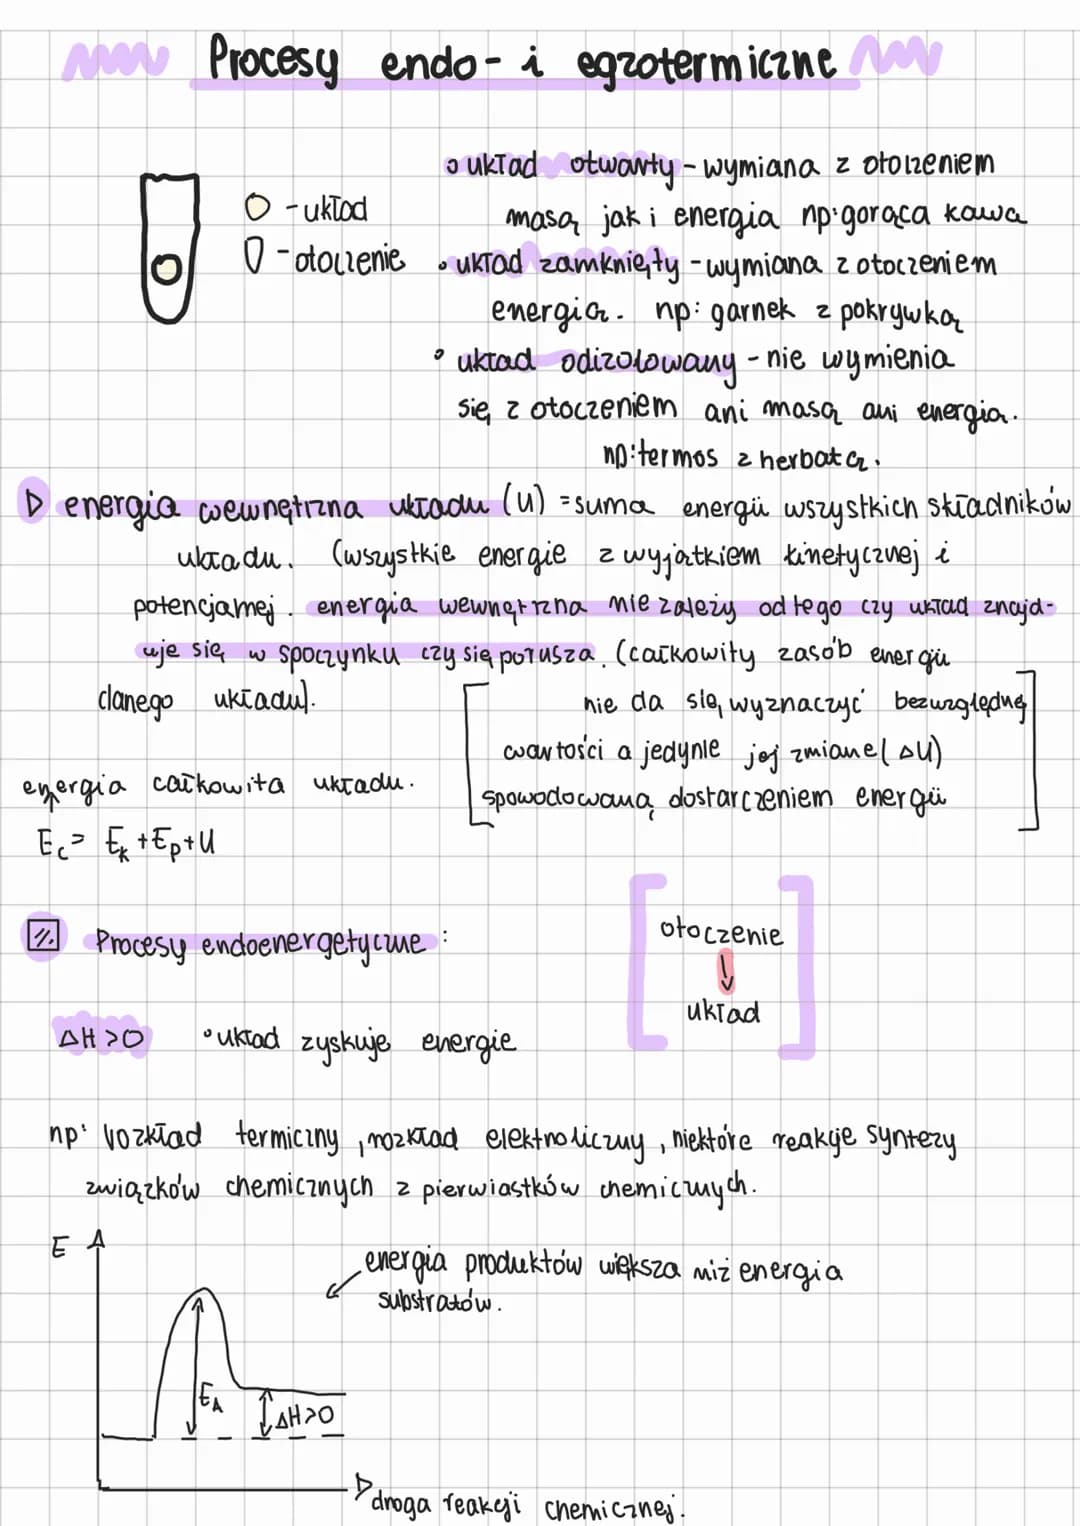 Procesy endo- i egzotermiczne
○ układ otwarty - wymiana z otoczeniem
masą jak i energią np: gorąca kawa
- układ
- otoczenie
• układ zamknięty - wymiana z otoczeniem
energią. np: garnek z pokrywką
• układ odizolowany - nie wymienia
się z otoczeniem ani masą ani energią.
np: termos z herbatą.
▷ energia wewnętrzna układu (U) = suma energii wszystkich składników
układu. (wszystkie energie z wyjątkiem kinetycznej i
potencjalnej. energia wewnętrzna nie zależy od tego czy układ znajd-
uje się w spoczynku czy się porusza. (całkowity zasób energii
danego układu).
[nie da się wyznaczyć bezwzględnej
wartości a jedynie jej zmianę (ΔU)
spowodowaną dostarczeniem energii]
energia całkowita układu.
Ec = Ek + Ep + U
1. Procesy endoenergetyczne:
otoczenie
↓
układ
ΔH > 0 • układ zyskuje energię
np: rozkład termiczny, rozkład elektroliczny, niektóre reakcje syntezy
związków chemicznych z pierwiastków chemicznych.
E
energia produktów większa niż energia
substratów.
EA
ΔH>0
droga reakcji chemicznej.